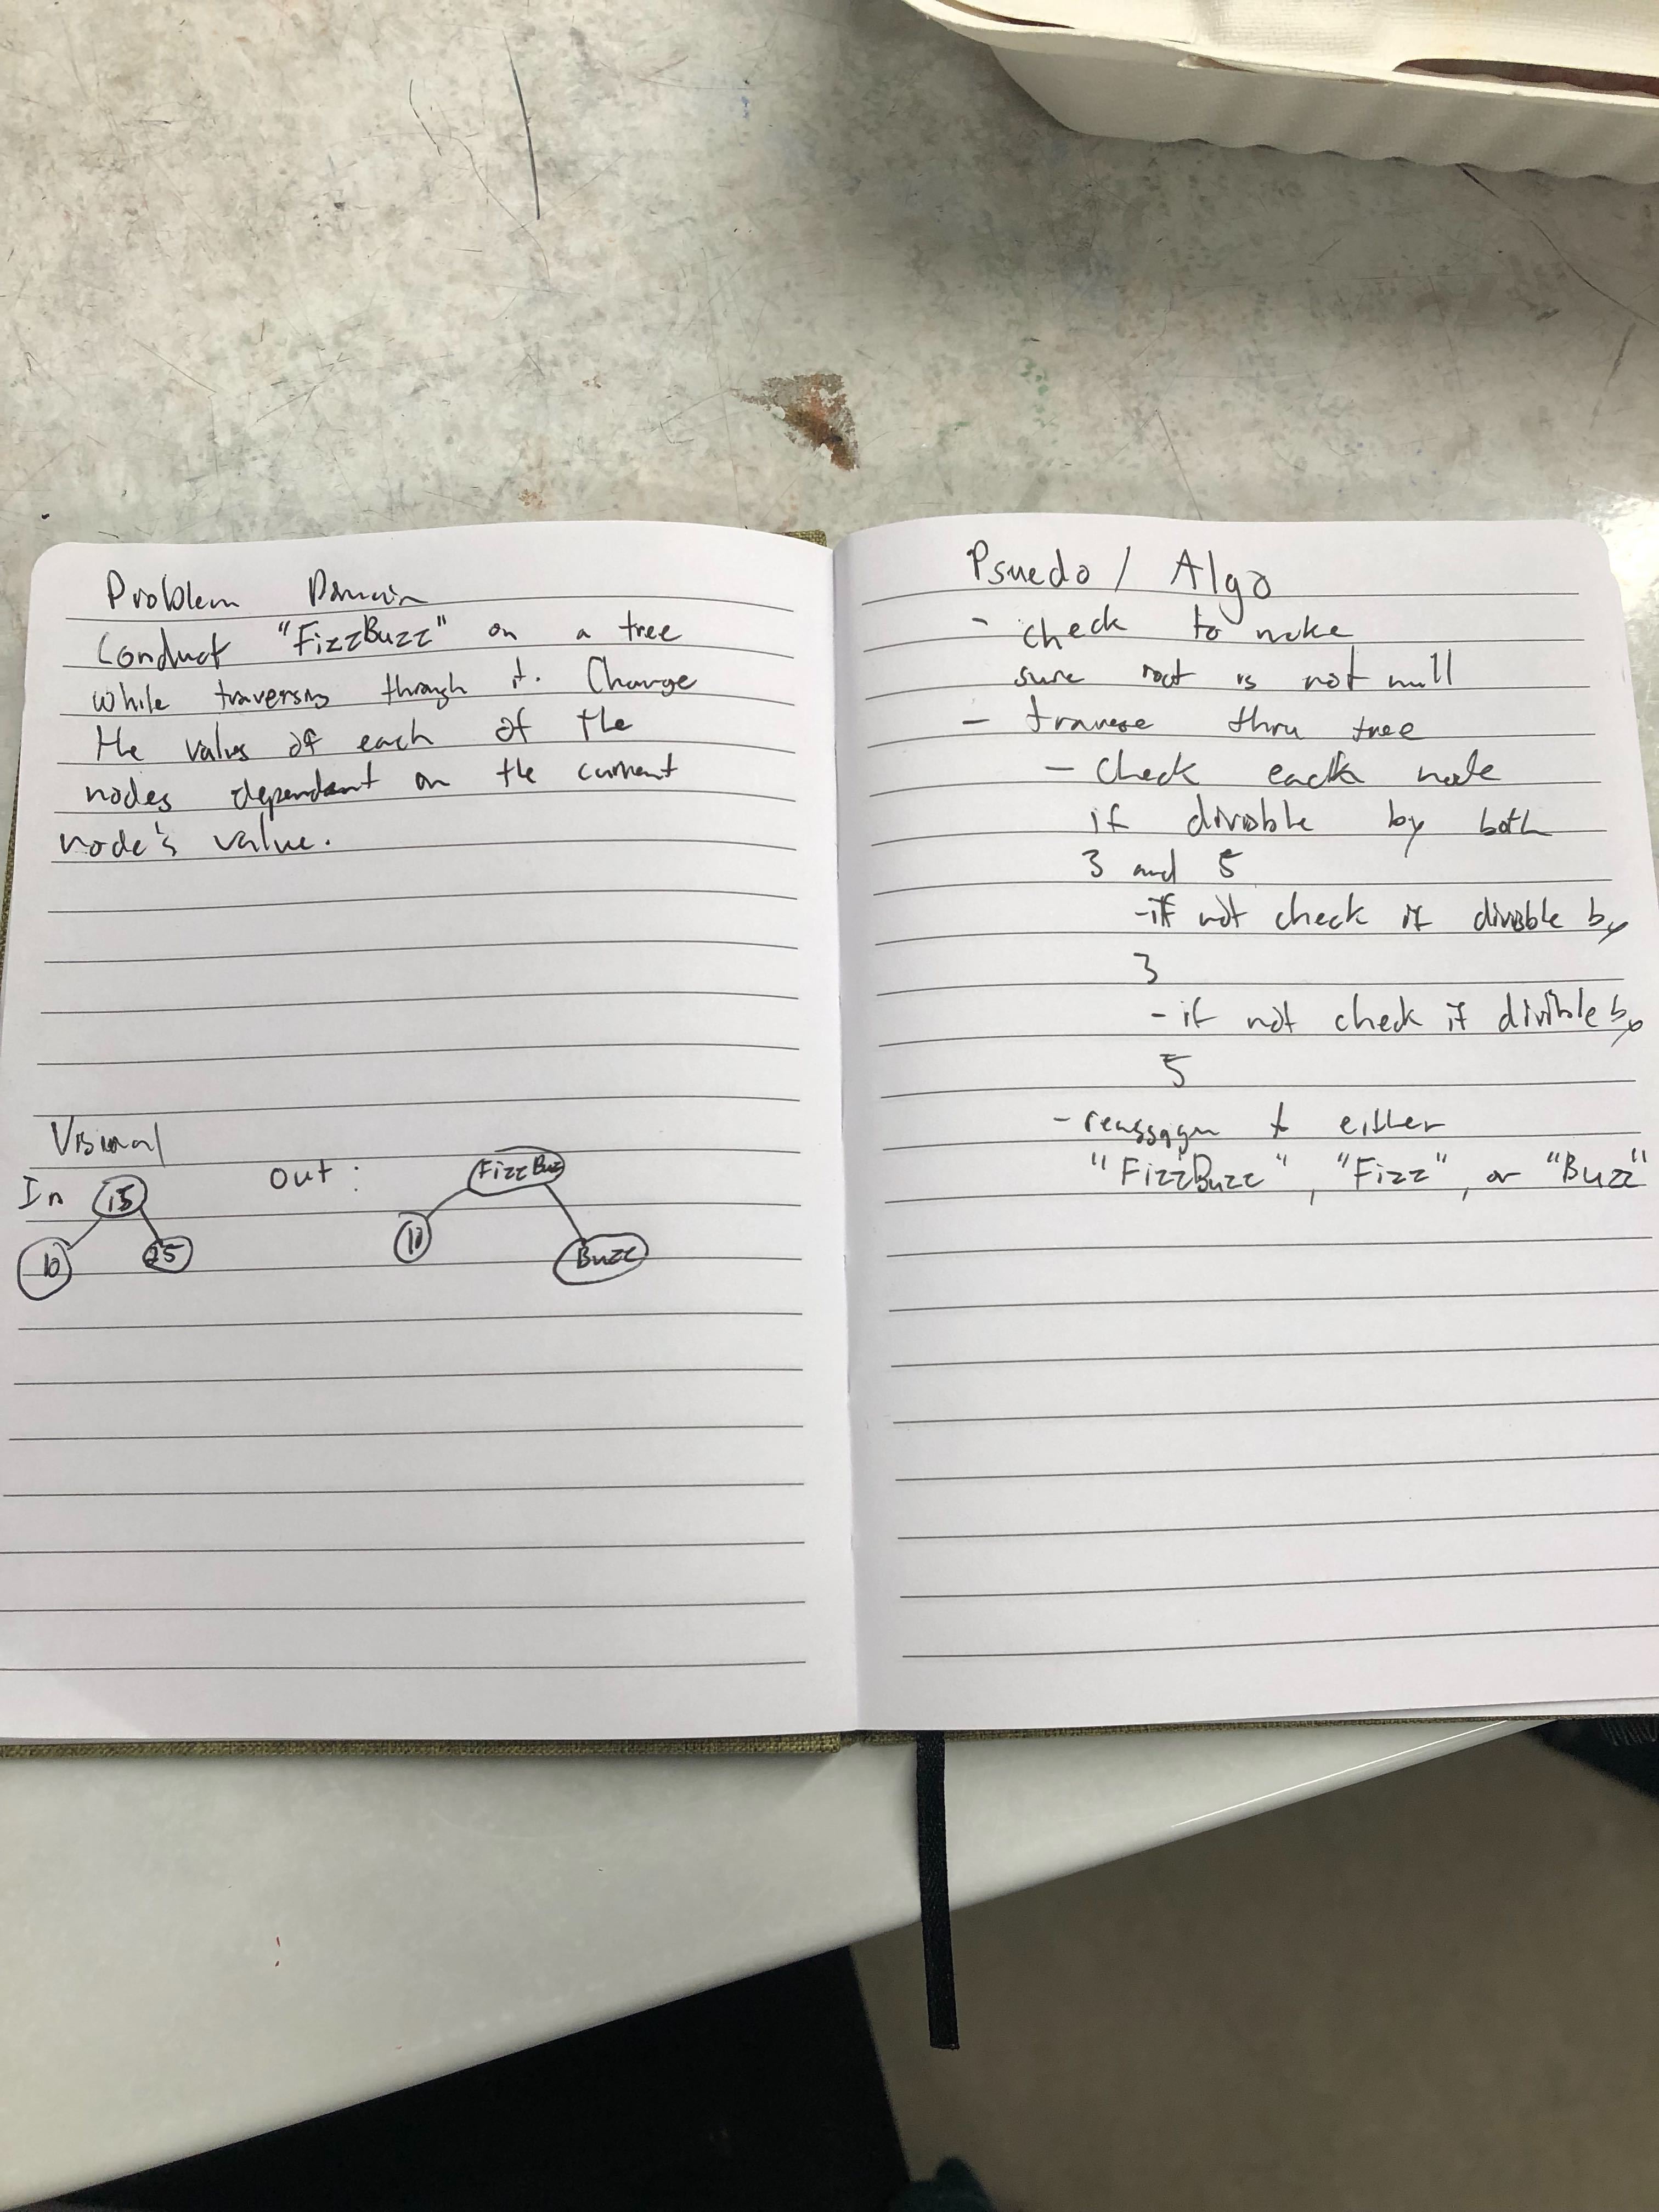 Problem Domain
Conduct "FizzBuzz" on a tree
while traversing through it. Change
the values of each of the
nodes dependent on the current
node's value.
Visual
In 15 Out: FizzBuz
10 25 10 Buzz
Psuedo / Algo
- check to make
sure root is not null
- traverse thru tree
- check each node
if divisible by both
3 and 5
- if not check if divisible by
3
- if not check if divisible by
5
- reassign to either
"FizzBuzz", "Fizz", or "Buzz"